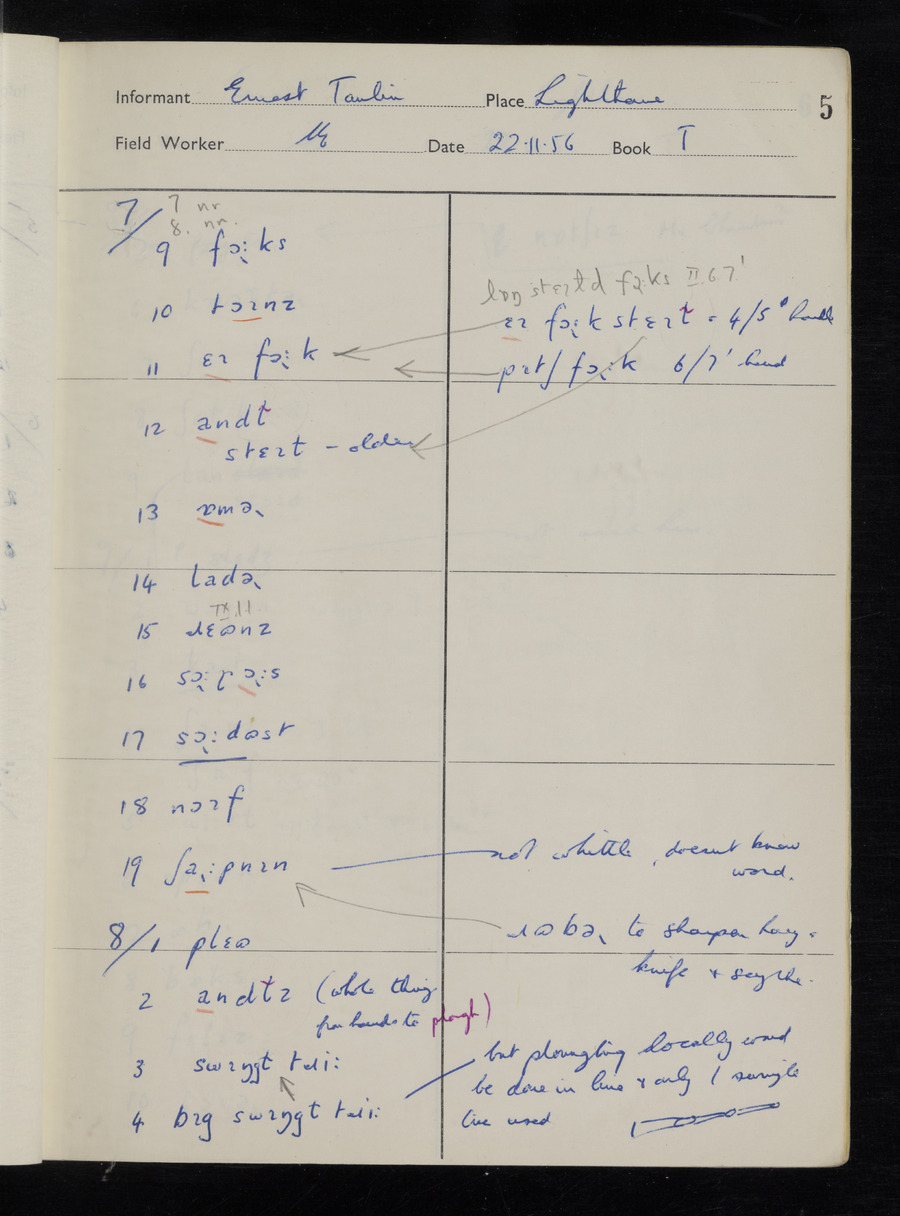 Informant Ernest Tomlin Place Lighthorne 5
Field Worker Date 22·11·56 Book T
7/ 7 nr
8. nr.
9 fɔ̣:ks
10 tɔɪnz
11 ɛɪ fɔ̣:k
12 andɫ
stɛɪt – older
13 amə̣
14 ladə̣
IX.11
15 ɹɛɷnz
16
17 sɔ̣:dɷst
18 nɔɪf
19 ʃạ:pnɪn
8/1 plɛɷ
2 andɫz (whole thing
from hands to plough)
3 swɪŋgt tɹi:
4 bɪg swɪŋgt tɹi:
lɒŋ stɛɪtd fɔ̣:ks II 6 7'
ɛɪ fɔ̣:k stɛɪɫ = 4/5' handle
pɪtʃ fɔ̣:k 6/7' hand
not whittle, doesn't know
word.
ɹɷbə̣ to sharpen hay-
knife + scythe.
but ploughing locally word
be done in line & only 1 swingle
tree used